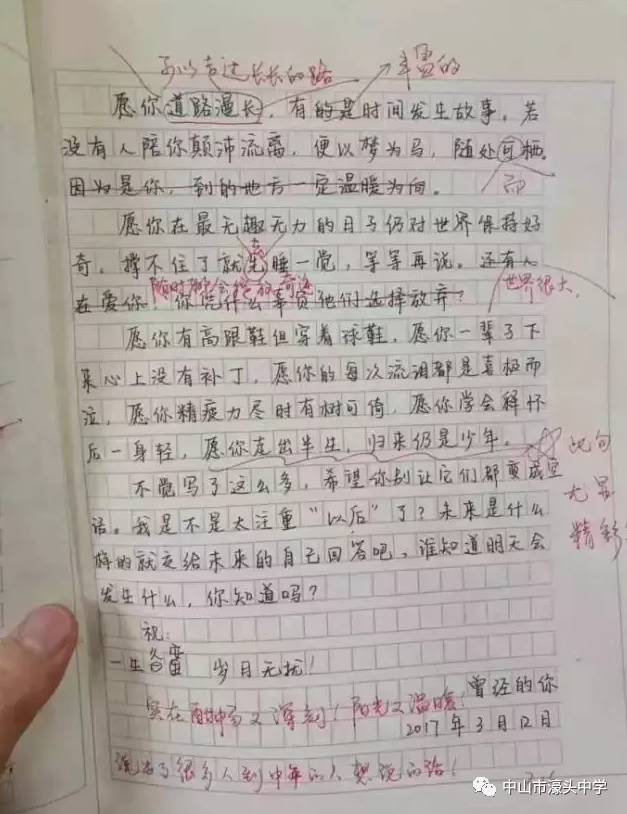 可以走过长长的路 丰富的
愿你道路漫长，有的是时间发生故事。若
没有人陪你颠沛流离，便以梦为马，随处可栖。
因为是你，到的地方一定温暖为向。 而
愿你在最无趣无力的日子仍对世界保持好
奇。撑不住了就先睡一觉，等等再说。还有人
随时都会绽放奇迹
在爱你，你凭什么辜负他们选择放弃？ 世界很大，
愿你有高跟鞋但穿着球鞋，愿你一辈子下
来心上没有补丁，愿你的每次流泪都是喜极而
泣，愿你精疲力尽时有树可倚，愿你学会释怀
后一身轻，愿你走出半生，归来仍是少年。 此句
不觉写了这么多，希望你别让它们都变成空
尤是
话。我是不是太注重“以后”了？未来是什么
精彩
样的就交给未来的自己回答吧，谁知道明天会
发生什么，你知道吗？
祝：
一生 岁月无扰！
实在酣畅又深刻！阳光又温暖！
曾经的你
2017年3月12日
说出了很多人到中年的人想说的话！
中山市濠头中学